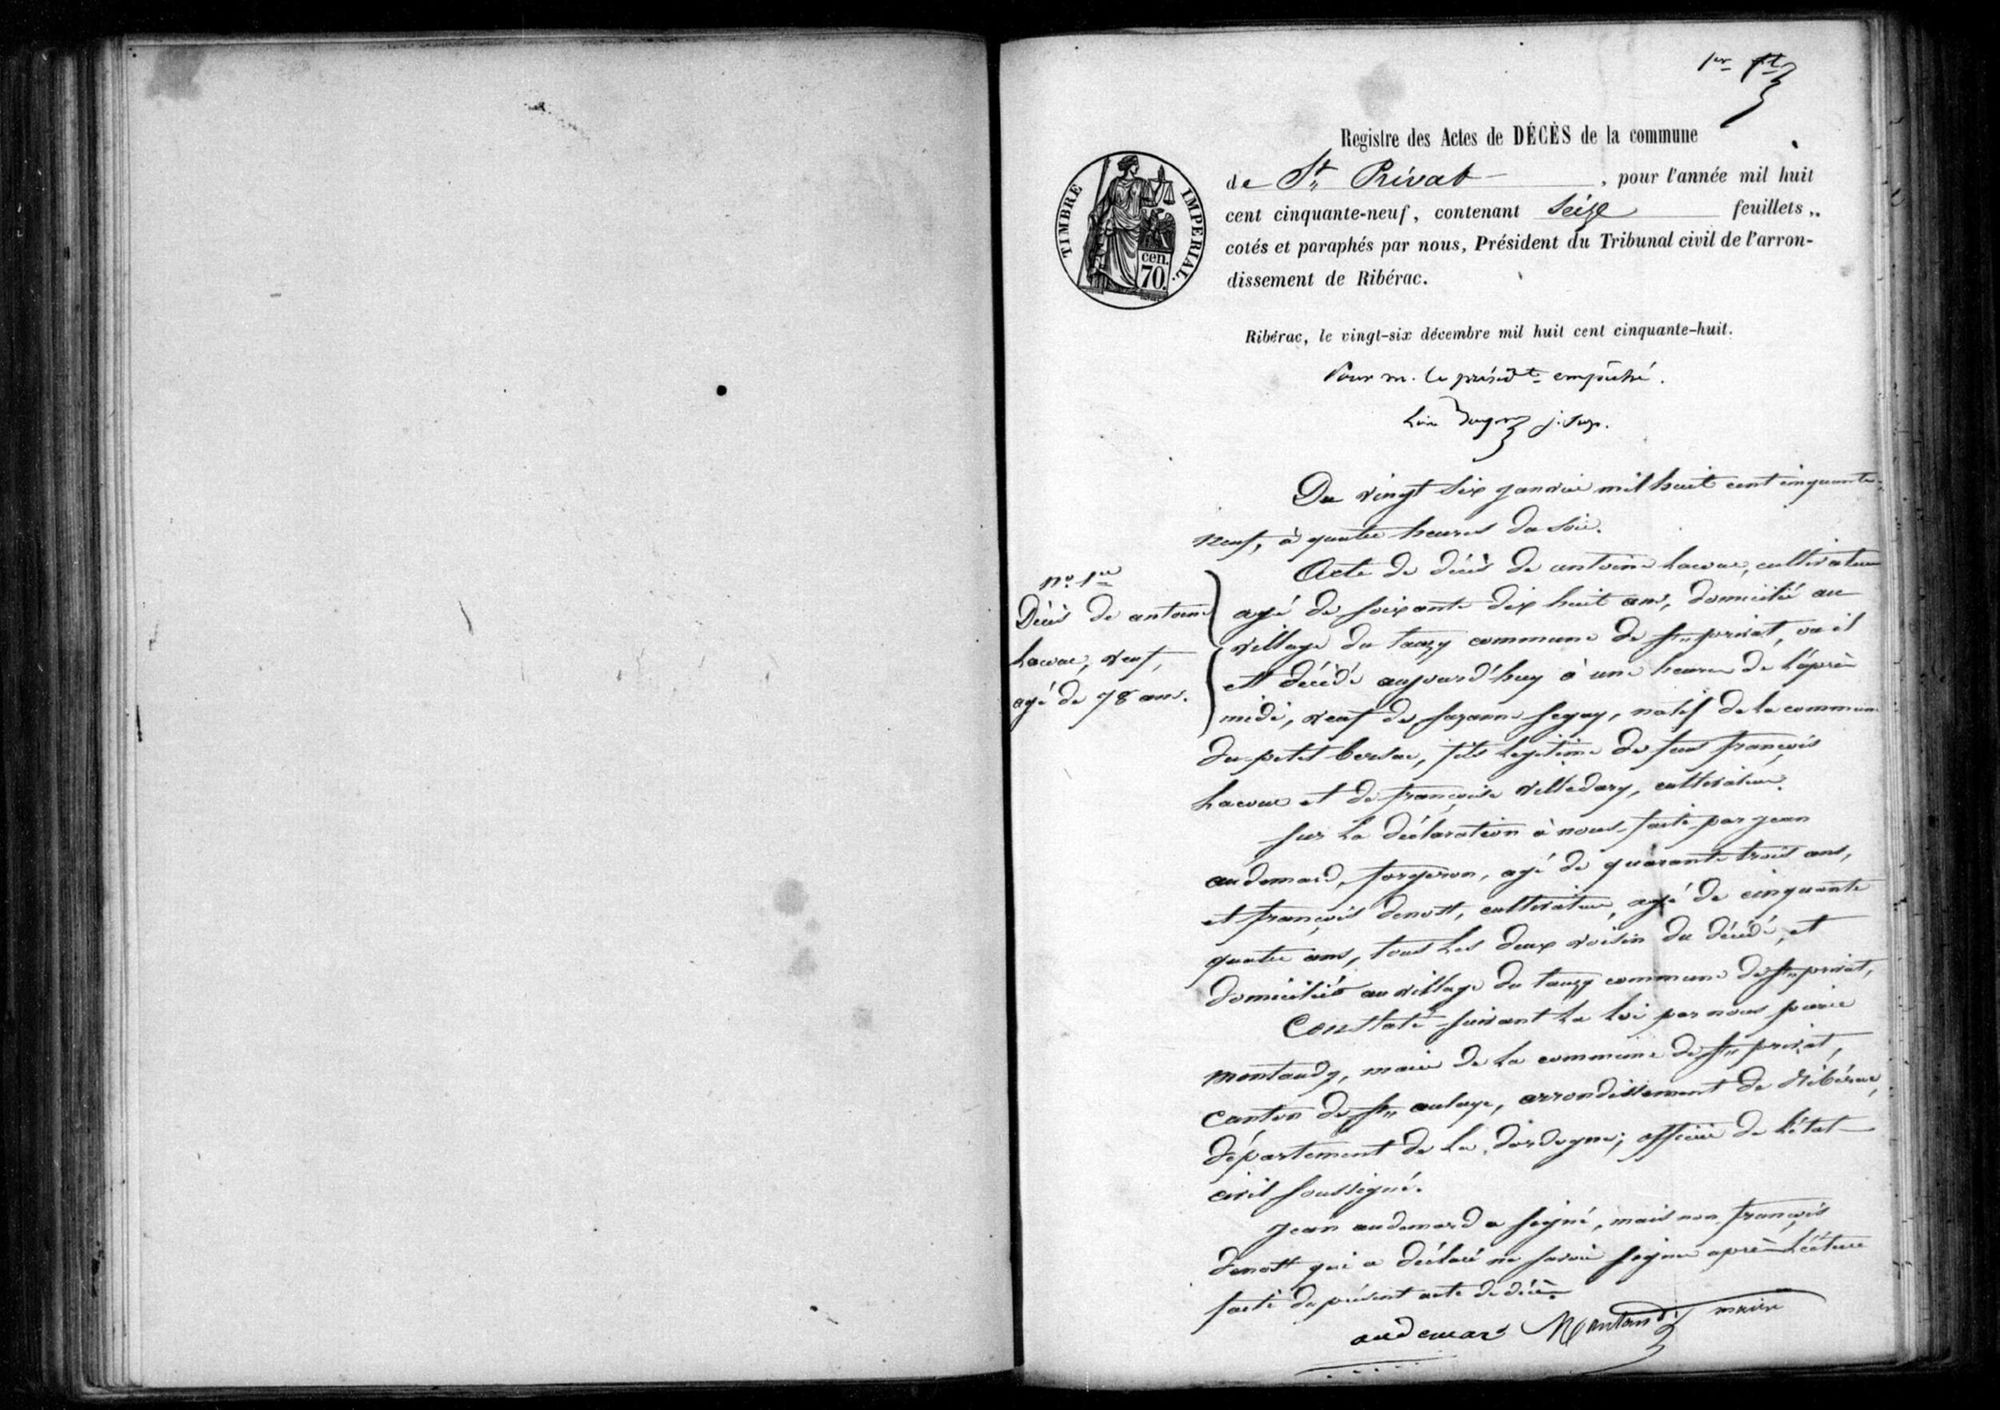 1er
Registre des Actes de DÉCÈS de la commune
de St Privat, pour l'année mil huit
cent cinquante-neuf, contenant seize feuillets,
cotés et paraphés par nous, Président du Tribunal civil de l'arron-
dissement de Ribérac.
TIMBRE IMPÉRIAL.
cen.
70.
Ribérac, le vingt-six décembre mil huit cent cinquante-huit.
Pour m. le présidt empêché.
j. sup.
Du vingt six janvier mil huit cent cinquante-
neuf, à quatre heures du soir.
no. 1er
Décès de antoine
Lacour, veuf,
agé de 78 ans.
Acte de décès de antoine Lacour, cultivateur
agé de soixante dix huit ans, domicilié au
village du tauzy commune de St privat, ou il
est décédé aujourd'huy à une heure de l'après
midi, veuf de suzanne seguy, natif de la commune
du petit bersac, fils legitime de feus françois
Lacour et de françoise villedary, cultivateur.
Sur la déclaration à nous faite par jean
audemard, forgeron, agé de quarante trois ans,
et françois denost, cultivateur, agé de cinquante
quatre ans, tous les deux voisin du décédé, et
domiciliés au village du tauzy commune de St privat,
Constaté suivant la loi par nous pierre
montaudy, maire de la commune de St privat,
canton de Ste aulaye, arrondissement de Ribérac,
département de la dordogne; officier de l'état
civil soussigné.
jean audemard a signé, mais non françois
denost qui a déclaré ne savoir signer après lécture
faite du présent acte de décès.
audemard Montaudy maire